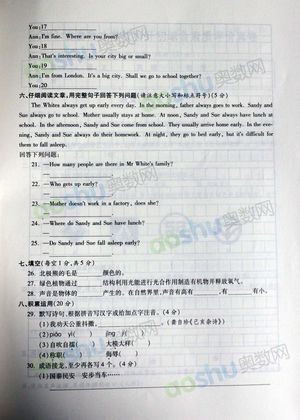 You: 17
Ann: I'm fine. Where are you from?
You: 18
Ann: That's interesting. Is your city big or small?
You: 19
Ann: I'm from London. It's a big city. Shall we go to school together?
You: 20
六、仔细阅读文章,用完整句子回答下列问题(请注意大小写和标点符号)(5分)
The Whites always get up early every day. In the morning, father always goes to work. Sandy and
Sue always go to school. Mother usually stays at home. At noon, Sandy and Sue always have lunch
at school. In the afternoon, Sandy and Sue come from school. They usually arrive home early. In the
evening, Sandy and Sue always do their homework. At night, they go to bed early, but it's difficult for
them to fall asleep.
回答下列问题:
21. —How many people are there in Mr White's family?
—
22. —Who gets up early?
—
23. —Mother doesn't work in a factory, does she?
—
24. —Where do Sandy and Sue have lunch?
—
25. —Do Sandy and Sue fall asleep early?
—
七、填空(每空1分,共5分)
26. 北极熊的毛是 颜色的。
27. 绿色植物通过 结构利用光能进行光合作用制造有机物并释放氧气。
28. 声音是物体的 产生的。在自然界里,声音有高有 ,有 有小。
八、积累运用(20分)
29. 默写诗句,根据拼音写汉字或给加点字注音。
(1)我劝天公重抖擞, 。(龚自珍《己亥杂诗》)
(3)自吹自擂( ) 大模大样( )
(4)称职( ) 侮辱( )
30. 成语接龙,至少再各写4个。(4分)
(1)国泰民安 安步当车……
奥数网
aoshu